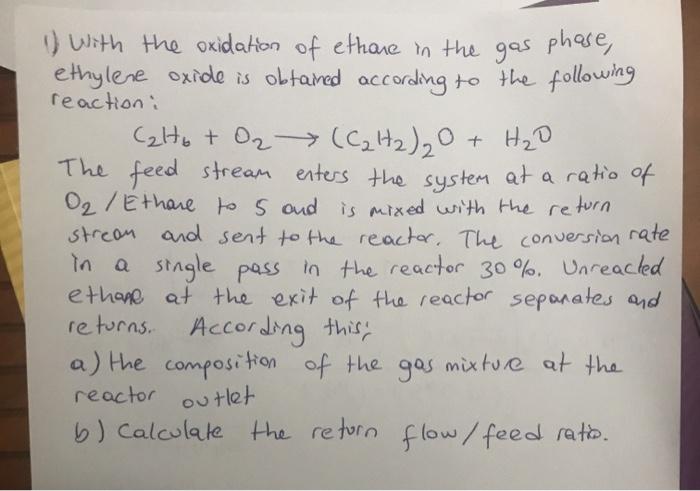 1) With the oxidation of ethane in the gas phase,
ethylene oxide is obtained according to the following
reaction:
C₂H₆ + O₂ → (C₂H₂)₂O + H₂O
The feed stream enters the system at a ratio of
O₂ / Ethane to 5 and is mixed with the return
stream and sent to the reactor. The conversion rate
in a single pass in the reactor 30%. Unreacted
ethane at the exit of the reactor separates and
returns. According this;
a) the composition of the gas mixture at the
reactor outlet
b) Calculate the return flow/feed ratio.